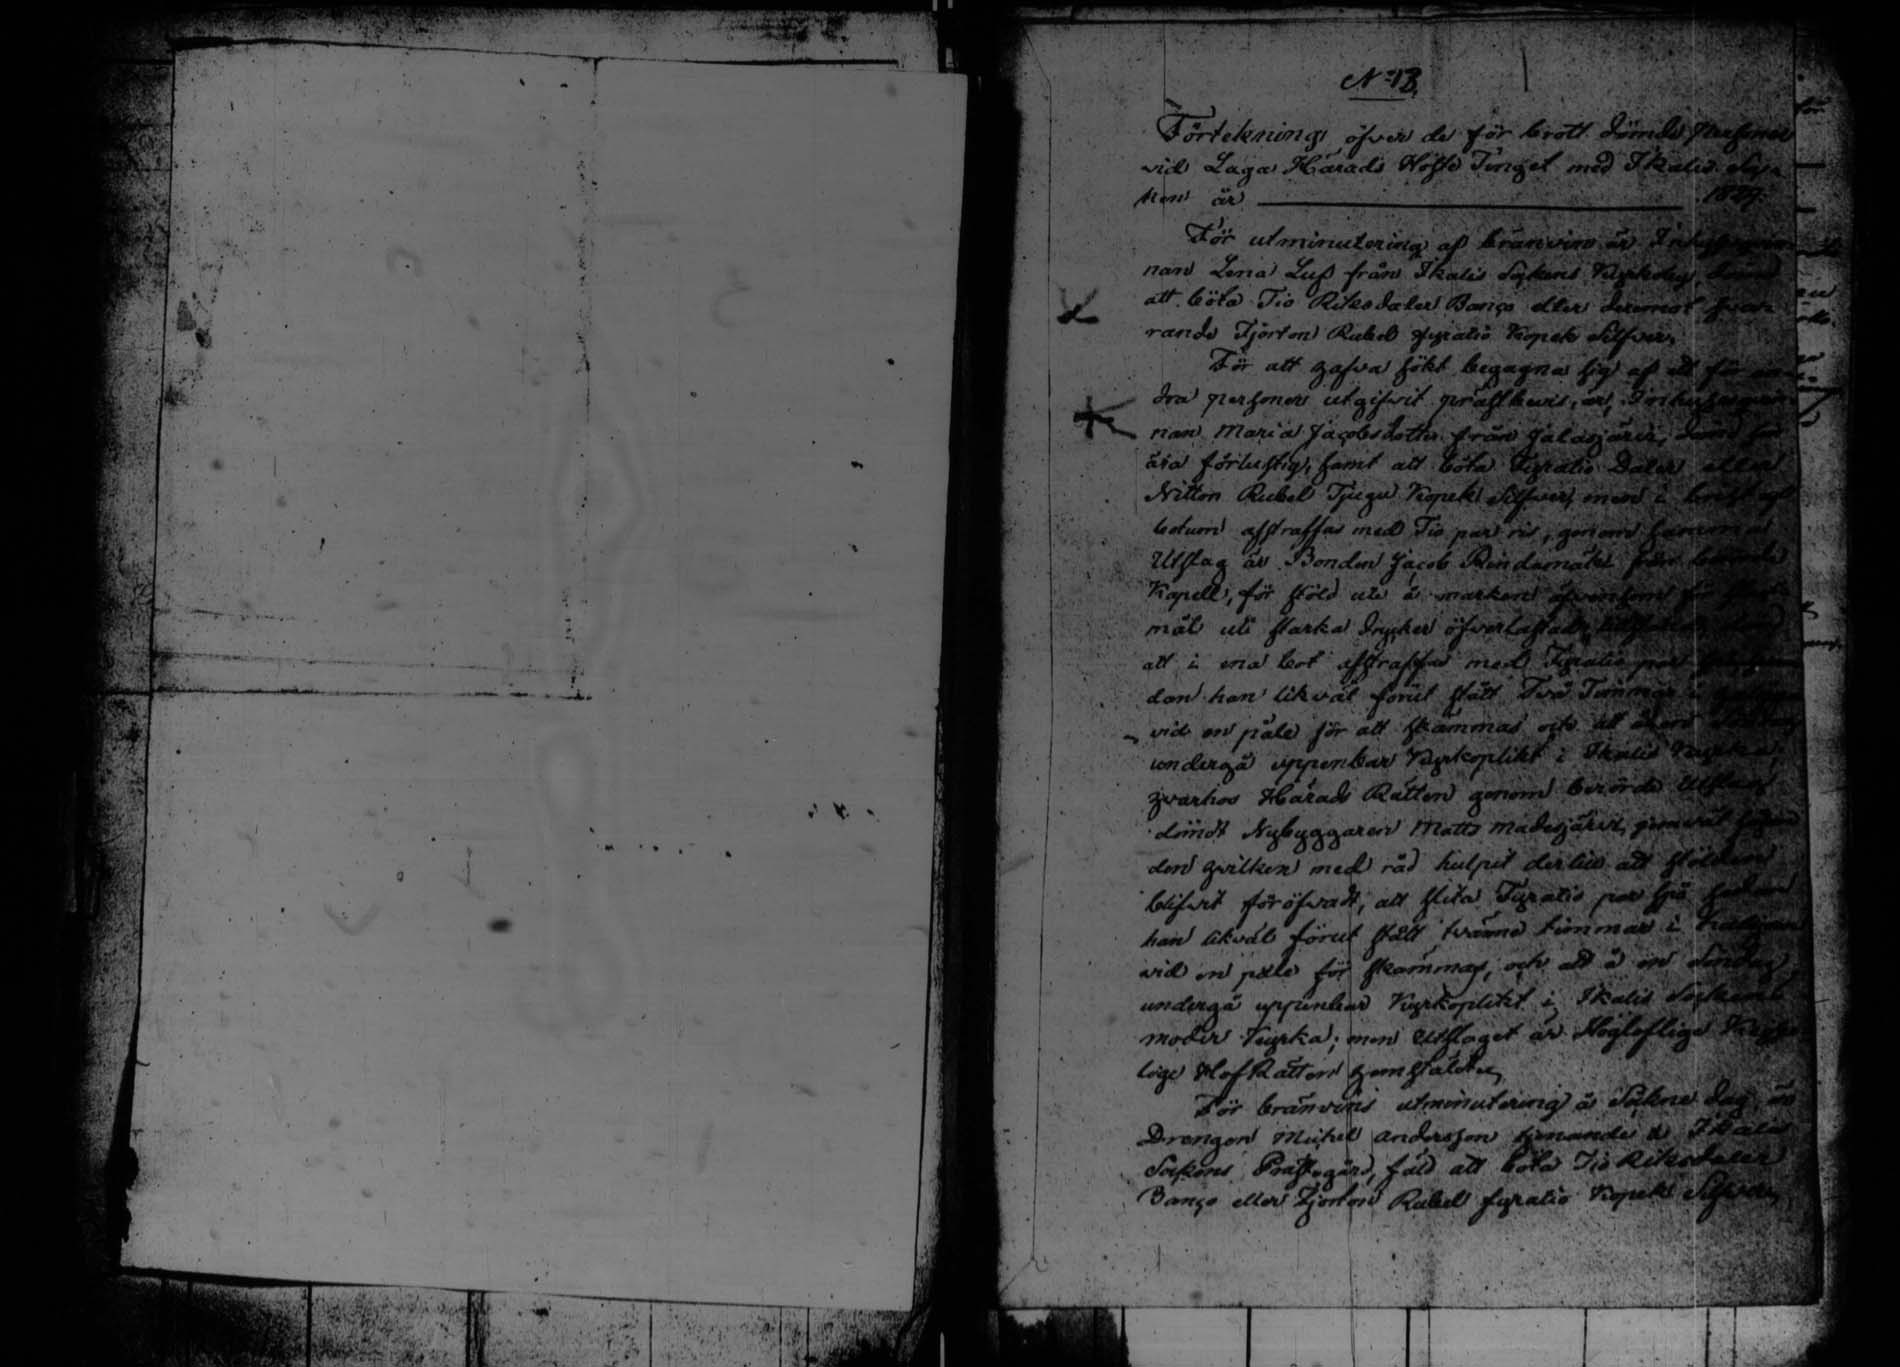 N:o 13.
Förtekning, öfver de för brott dömde Personer
vid Laga Härads Höste Tinget med Ikalis Soc-
ken år 1827.
För utminutering af bränvin är
nan Lena Luß från Ikalis Sockens Kyrkoby,
att böta Tio Riksdaler Banço eller deremot swa-
rande Fjorton Rubel fyratio Kopek Silfver,
För att hafva sökt begagna sig af ett för an-
dra personer utgifvit prästbevis, är, Inhyses
nan Maria Jacobsdotter från Jalasjärvi, dömd
ära förlustig, samt att böta Fyratio Daler eller
Nitton Rubel Tjugu Kopek Silfver, men i brist af
botum afstraffas med Tio par ris, genom samma
Utslag är Bonden Jacob Rindamäki från
Kapell, för stöld ute å marken äfvensom för
mål uti starka drycker öfverlastad,
att i ena bot afstraffas med Fyratio par
dan han likväl förut stått Två Timmar i
vid en påle för att skämmas och att å en
undergå uppenbar Kyrkoplikt i Ikalis Kyrka;
hvarhos Härads Rätten genom berörde Utslag
dömdt Nybyggaren Matts Madesjärvi,
den hvilken med råd hulpit dertill att stölden
blifvit föröfvadt, att slita Fyratio par spö sedan
han likväl förut stått tvänne timmar i
vid en påle för skämmas, och att å en Söndag
undergå uppenbar Kyrkoplikt i Ikalis Sockens
moder Kyrka; men Utslaget är Högloflige Kejser-
lige HofRätten hemstäldt.
För bränvins utminutering å Sökne dag, är
Drengen Michel Andersson tjenande å Ikalis
Sockens Prästegård, fäld att böta Tio Riksdaler
Banço eller Fjorton Rubel fyratio Kopek Silfver,